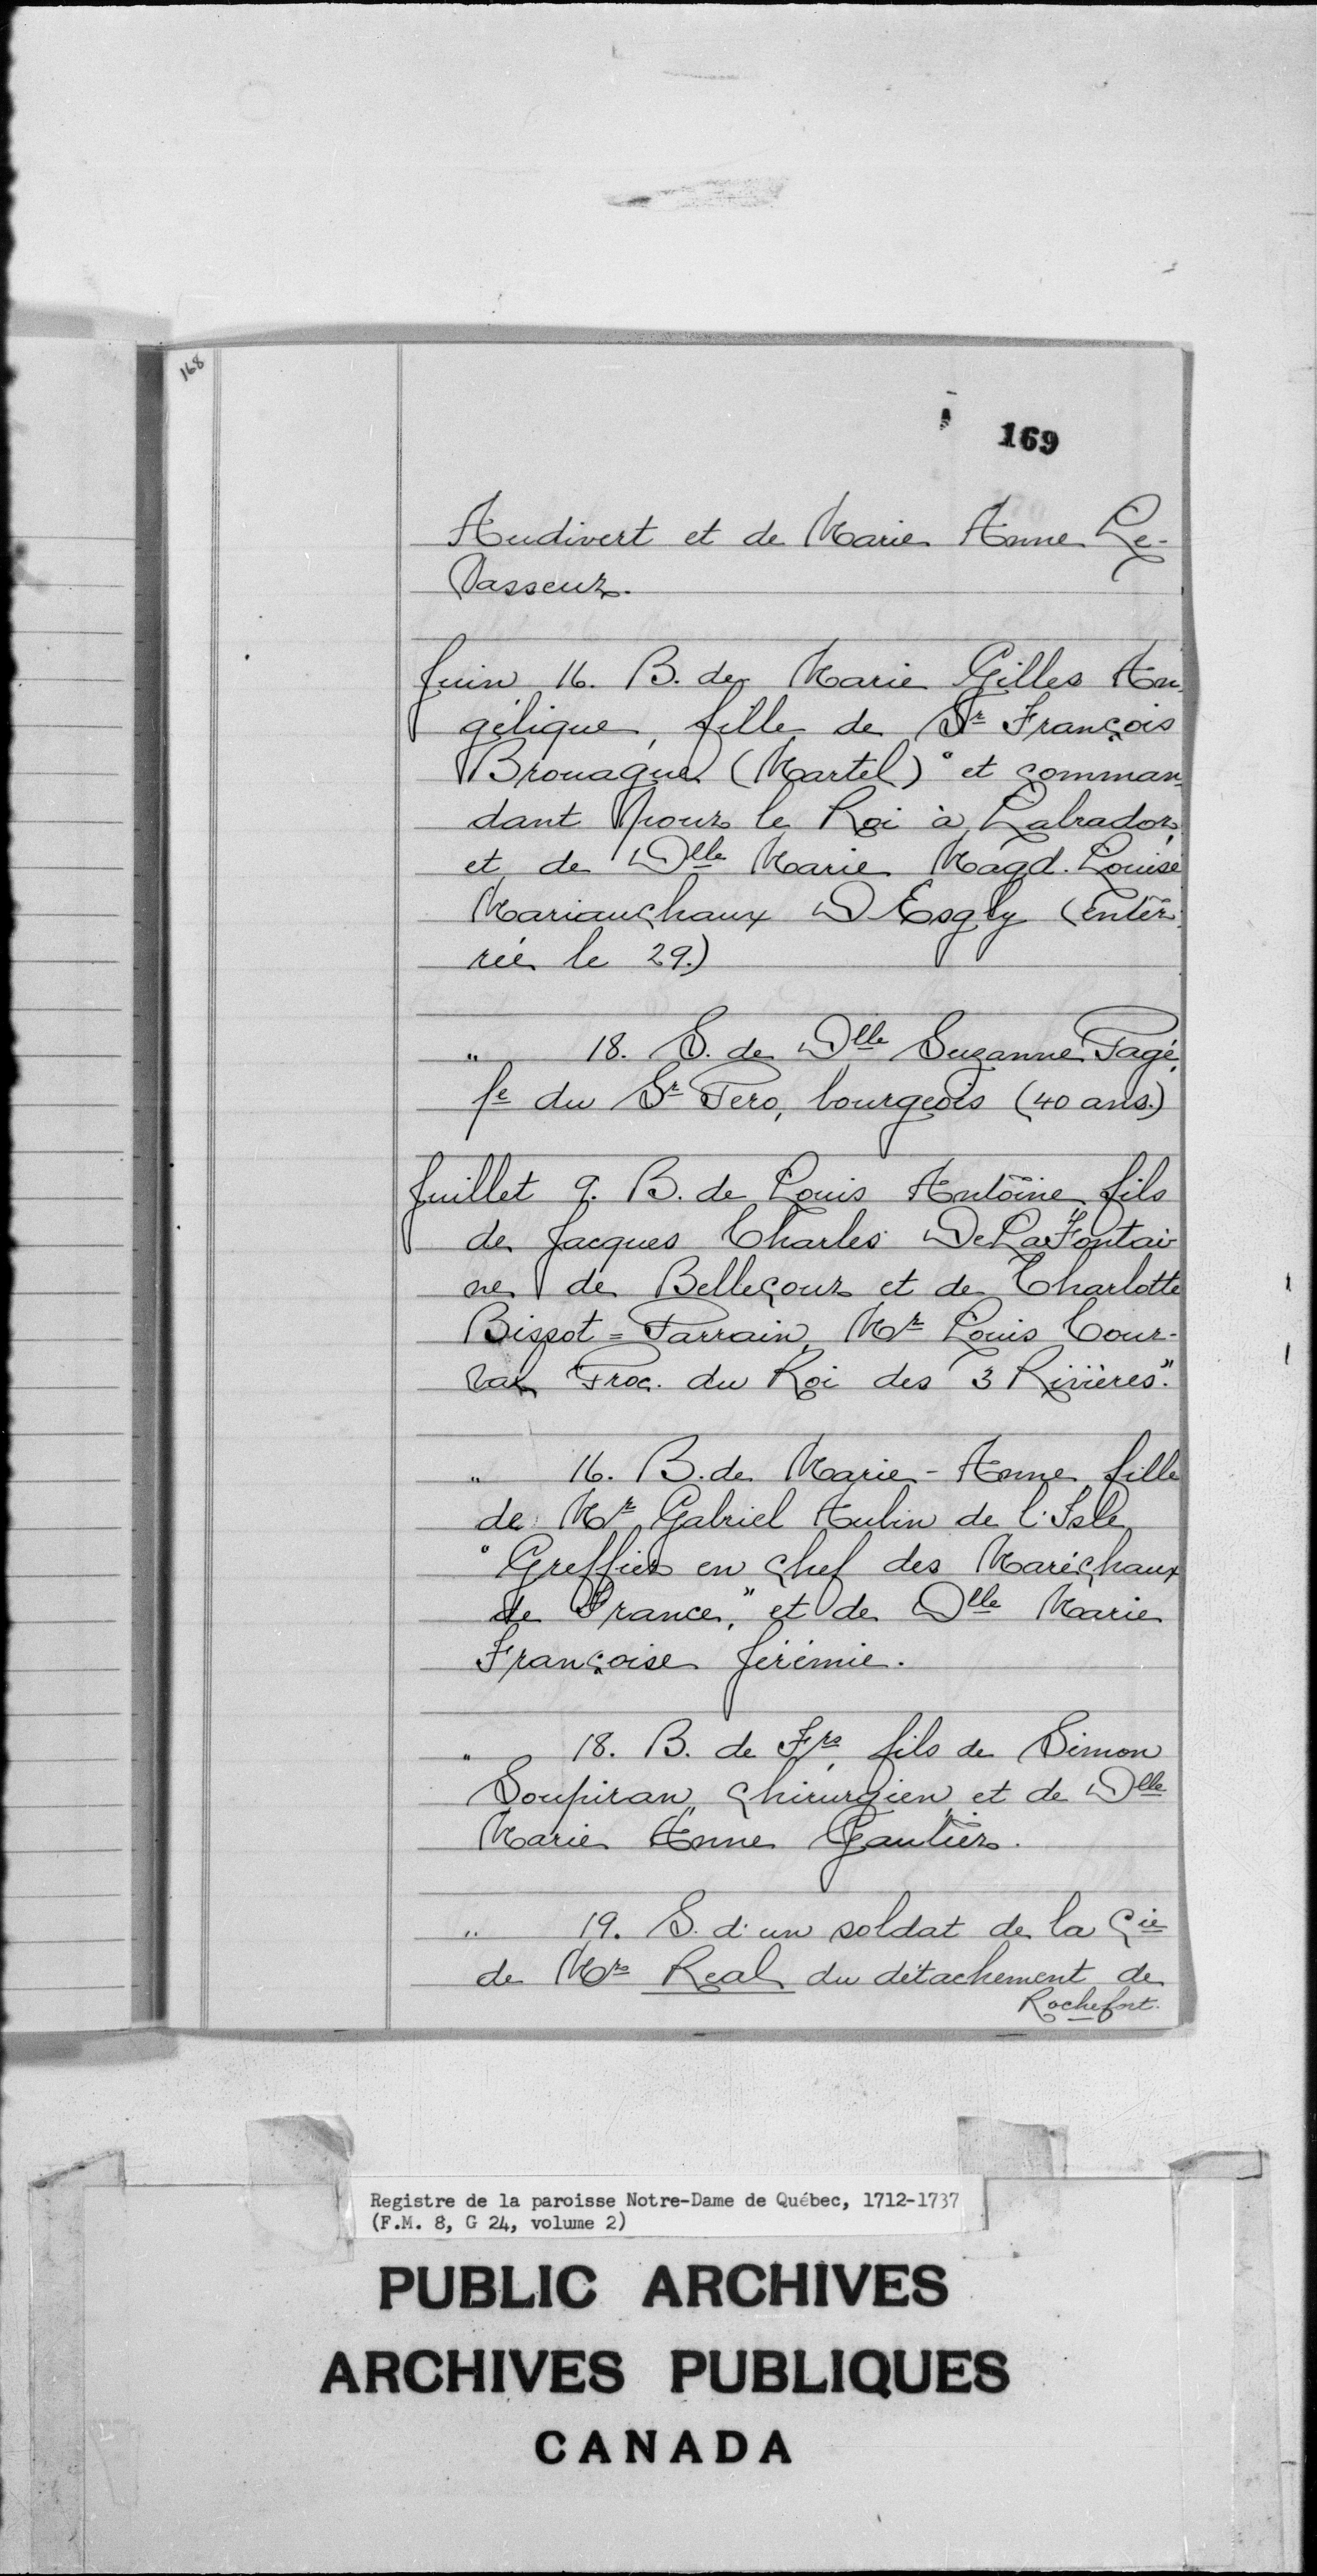 168
169
Audivert et de Marie Anne Le-
Vasseur.
Juin 16. B. de Marie Gilles An-
gélique, fille de Sr François
Brouague (Martel) "et comman-
dant pour le Roi à Labrador,
et de Dlle Marie Magd. Louise
Mariauchaux D Esgly (enter-
rée le 29.)
" 18. S. de Dlle Suzanne Pagé,
fe du Sr Pero, bourgeois (40 ans.)
Juillet 9. B. de Louis Antoine fils
de Jacques Charles De LaFontai-
ne de Bellecour et de Charlotte
Bissot = Parrain, Mr Louis Cour-
val Proc. du Roi des 3 Rivières."
" 16. B. de Marie-Anne fille
de Mr Gabriel Aulin de l'Isle
"Greffier en chef des Maréchaux
de France," et de Dlle Marie
Françoise Jérémie.
" 18. B. de Frs, fils de Simon
Soupiran, chirurgien, et de Dlle
Marie Anne Gautier.
" 19. S. d'un soldat de la Cie
de Mr Real du détachement de
Rochefort.
Registre de la paroisse Notre-Dame de Québec, 1712-1737
(F.M. 8, G 24, volume 2)
PUBLIC ARCHIVES
ARCHIVES PUBLIQUES
CANADA